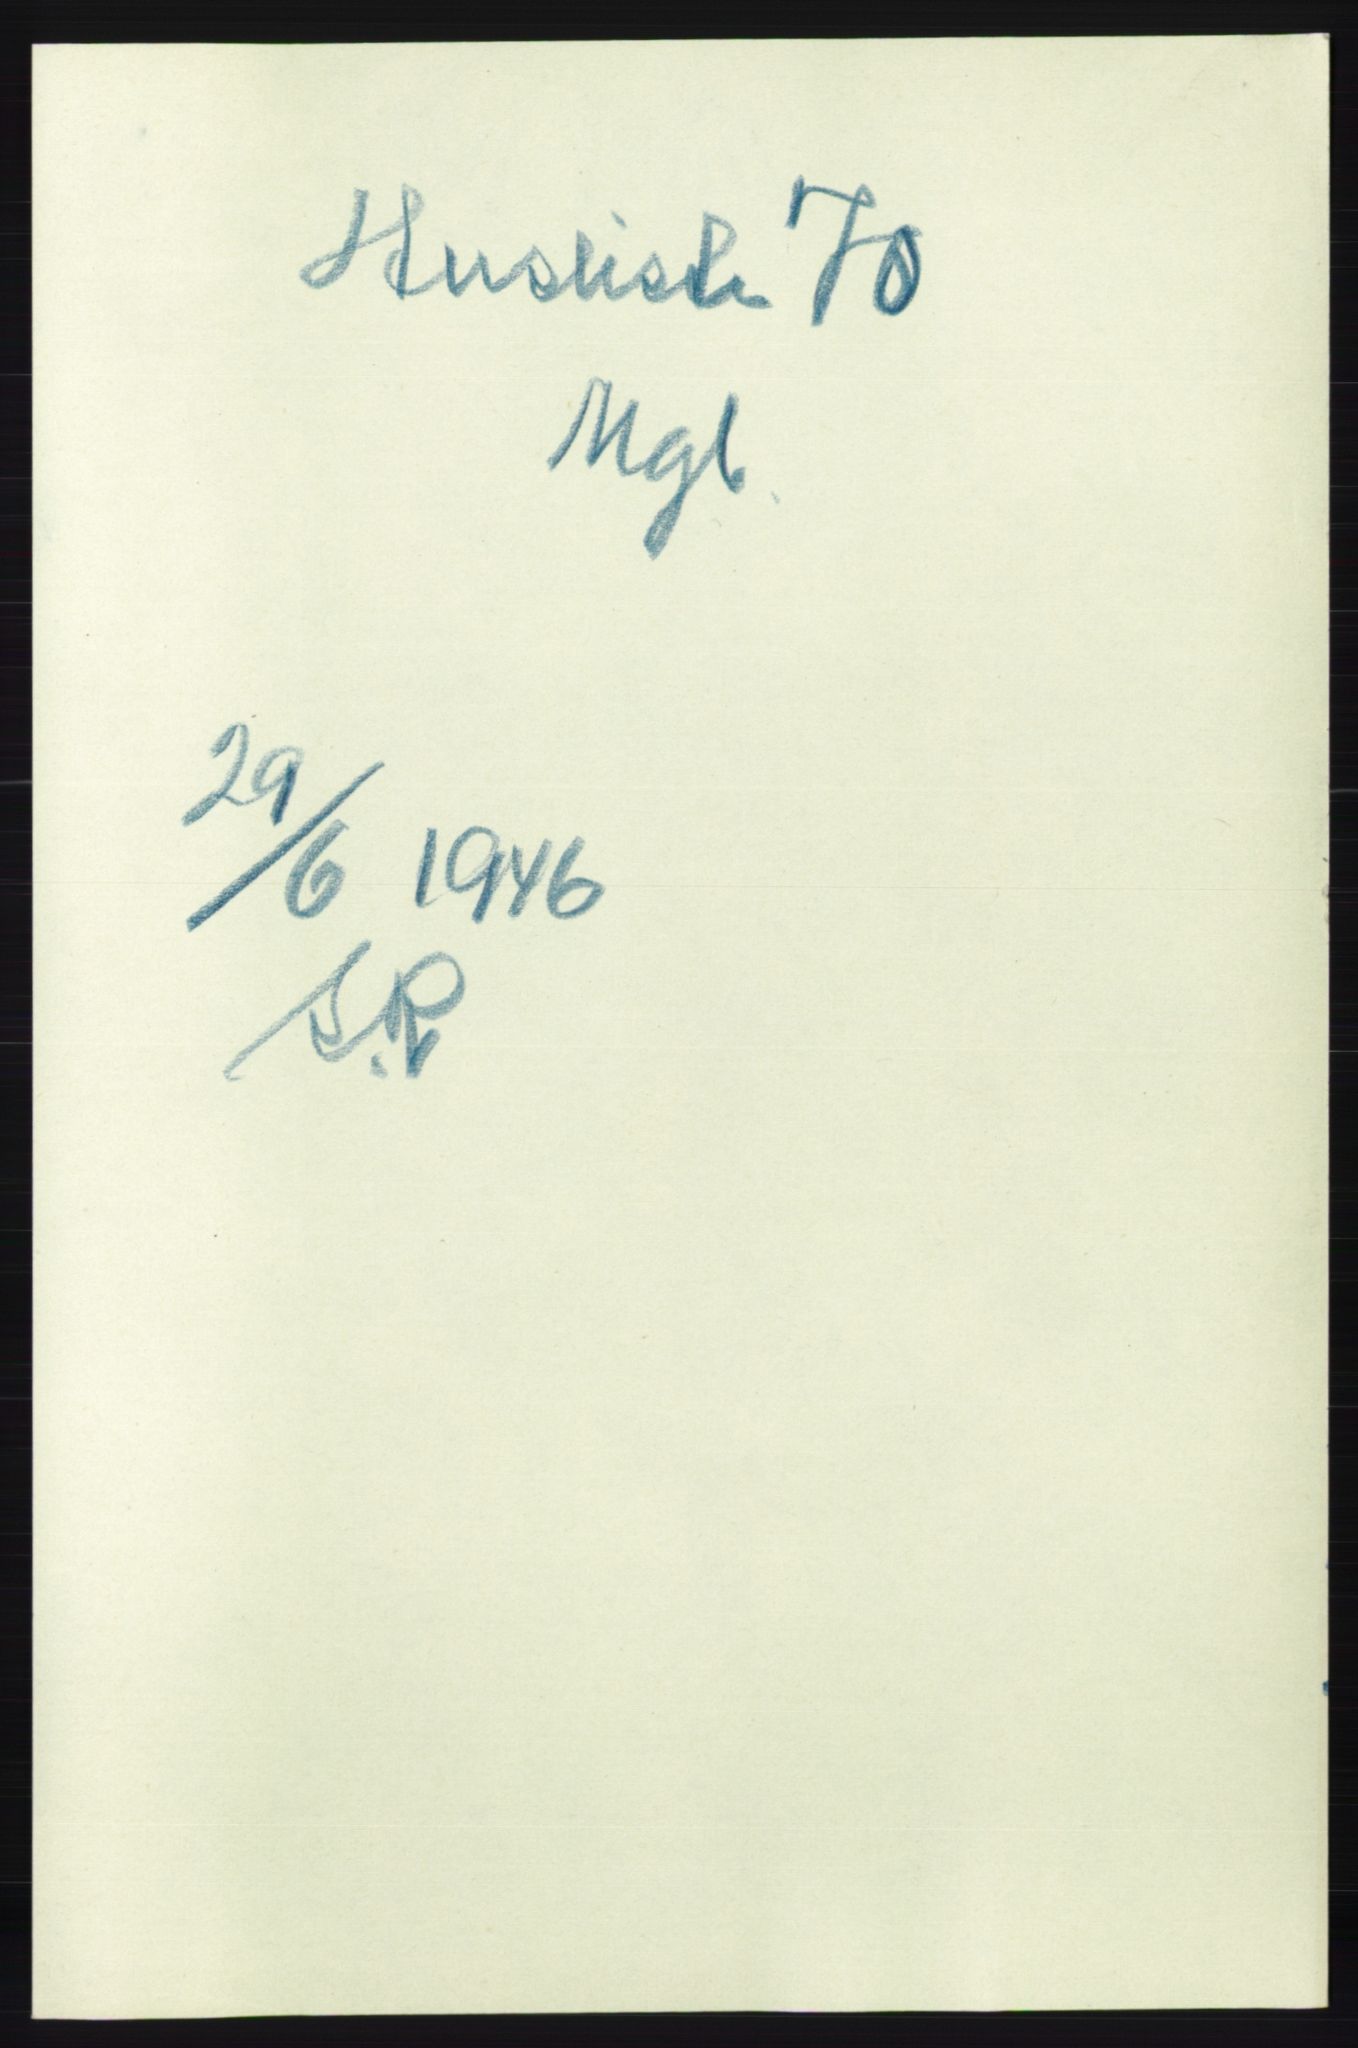 Husliste 70
Mgl.
29/6 1946
S.R